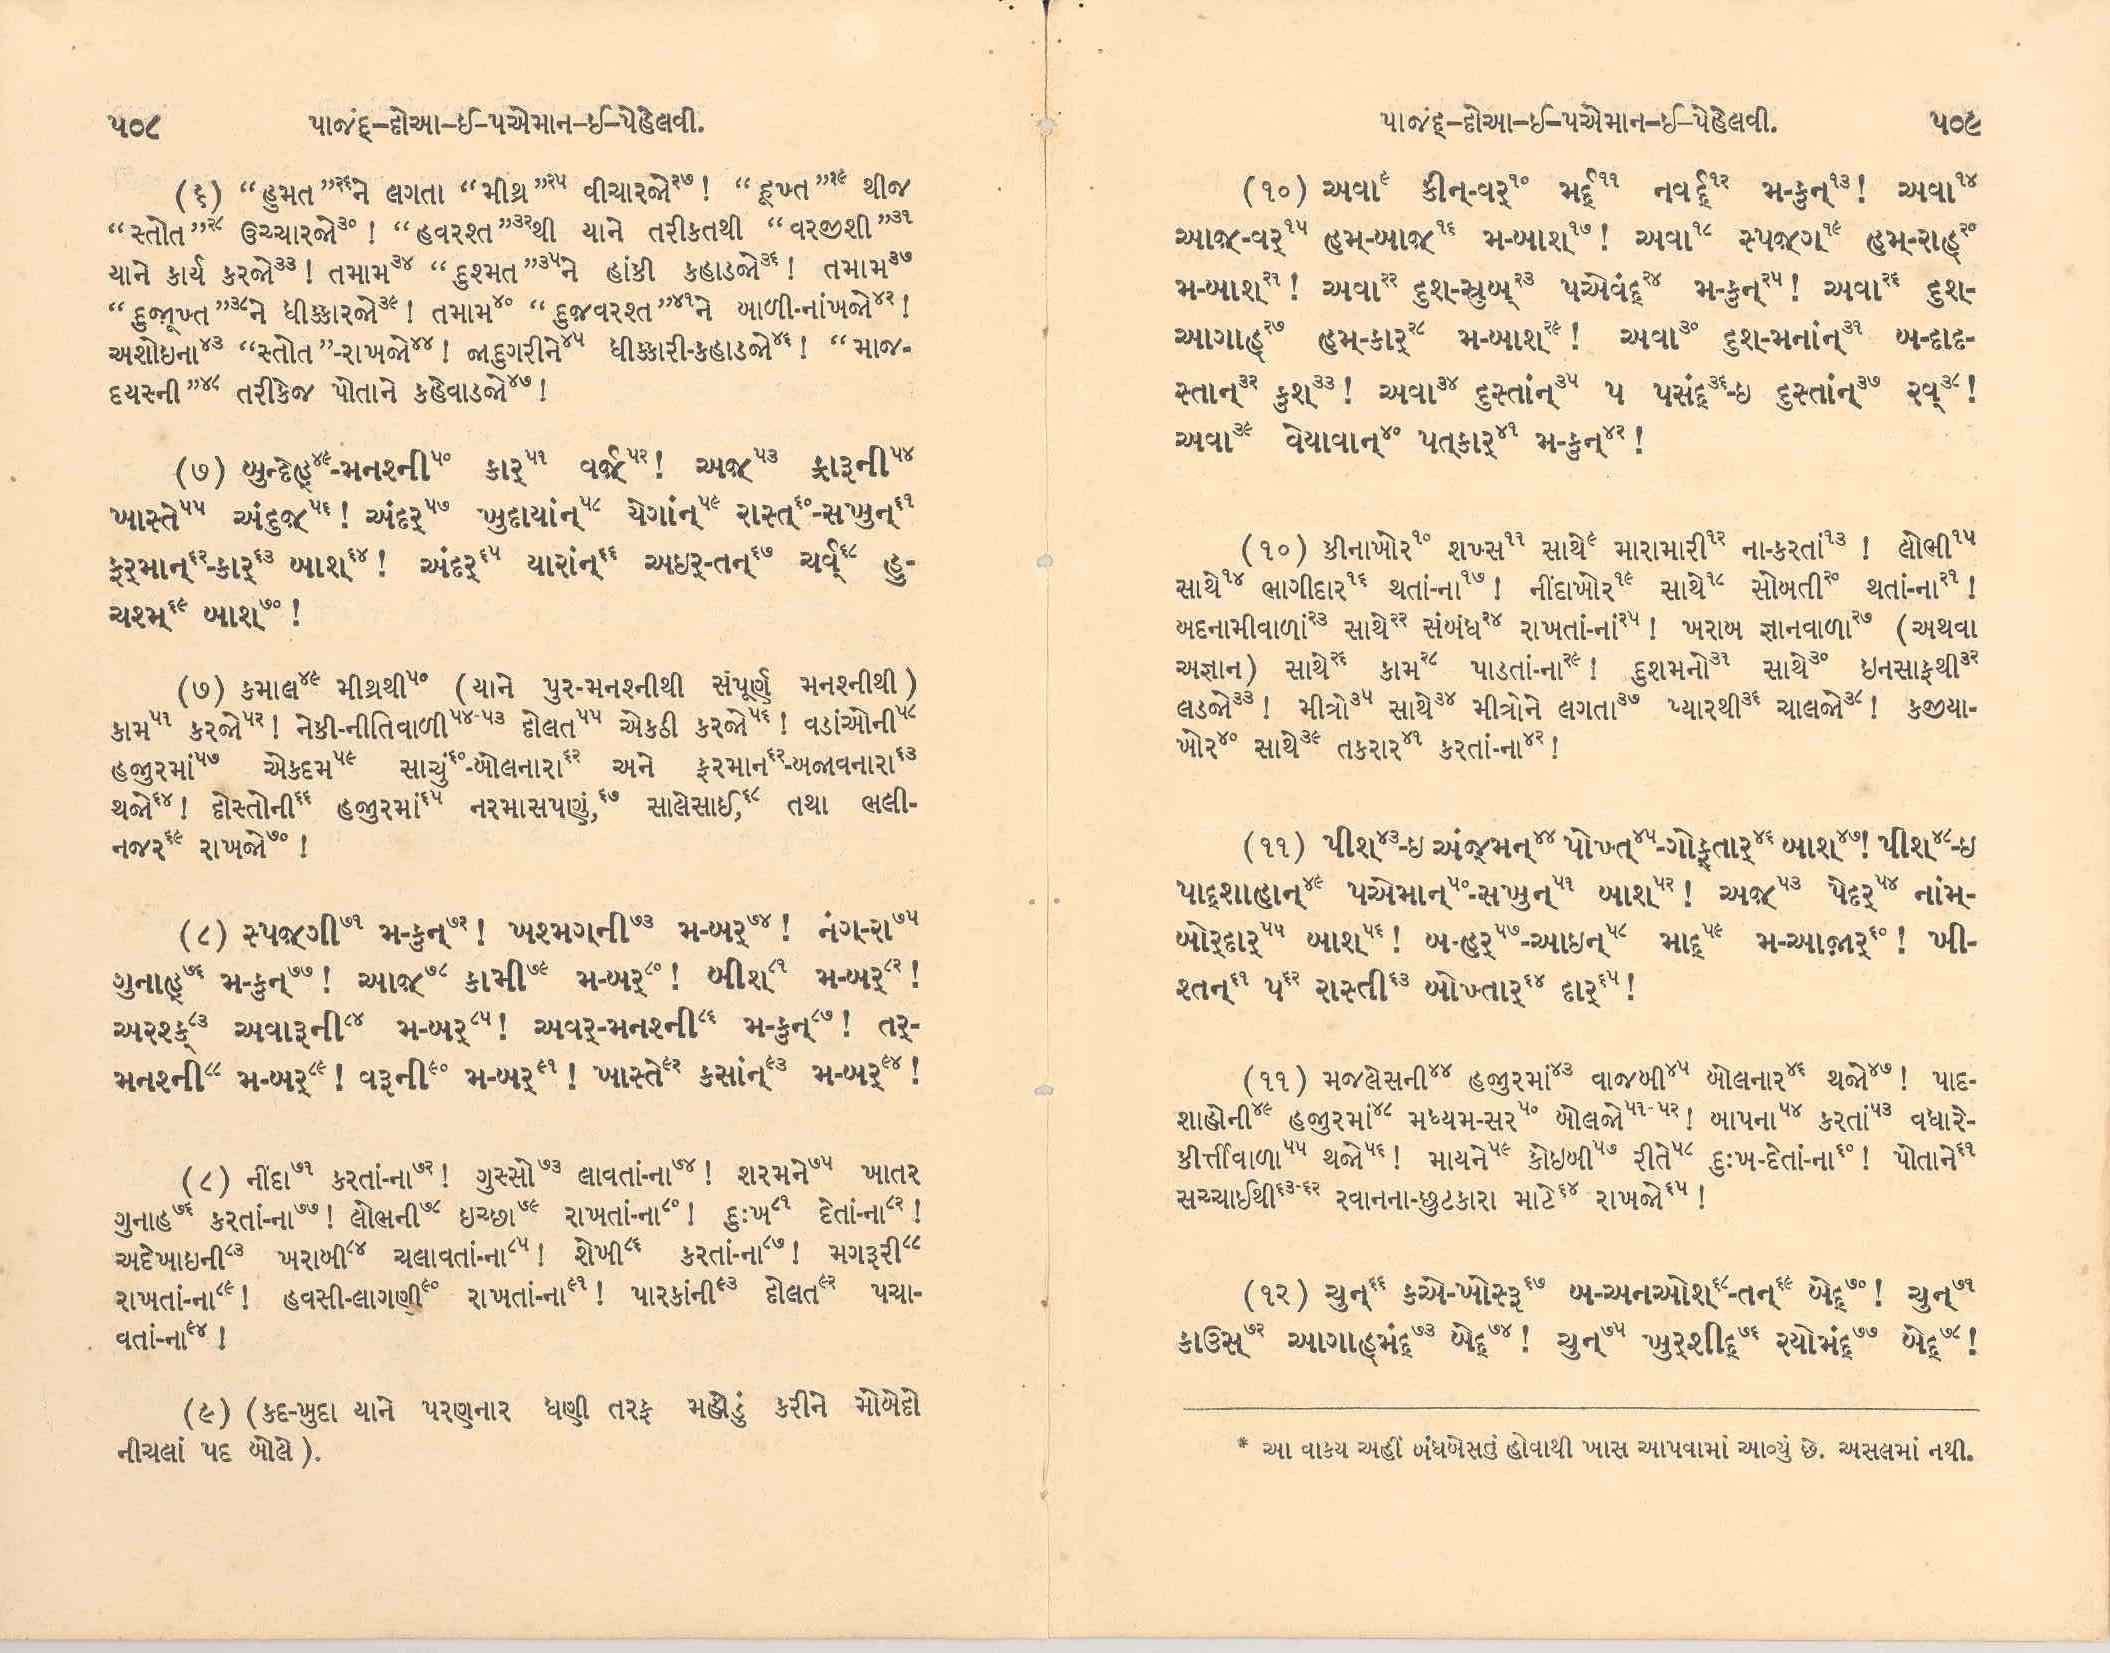 ૫૦૮ પાજંદ્-દોઆ-ઈ-પએમાન-ઈ-પેહેલવી.
(૬) “હુમત”૨૬ને લગતા “મીથ્ર”૨૫ વીચારજો૨૭! “હૂખ્ત”૨૯ થીજ
“સ્તોત”૨૮ ઉચ્ચારજો૩૦! “હવરશ્ત”૩૨થી યાને તરીકતથી “વરજીશી”૩૧
યાને કાર્ય કરજો૩૩! તમામ૩૪ “દુશ્મત”૩૫ને હાંકી કહાડજો૩૬! તમામ૩૭
“દુજ઼ૂખ્ત”૩૮ને ધીક્કારજો૩૯! તમામ૪૦ “દુજ઼વરશ્ત”૪૧ને બાળી-નાંખજો૪૨!
અશોઇના૪૩ “સ્તોત”-રાખજો૪૪! જાદુગરીને૪૫ ધીક્કારી-કહાડજો૪૬! “માજ-
દયસ્ની”૪૮ તરીકેજ પોતાને કહેવાડજો૪૭!
(૭) બુન્દેહ્૪૯-મનશ્ની૫૦ કાર્૫૧ વર્જ઼્૫૨! અજ઼્૫૩ ફ્રારૂની૫૪
ખાસ્તે૫૫ અંદુજ઼્૫૬! અંદર્૫૭ ખુદાયાંન્૫૮ યેગાંન્૫૯ રાસ્ત્૬૦-સખુન્૬૧
ફર્માન્૬૨-કાર્૬૩ બાશ્૬૪! અંદર્૬૫ યારાંન્૬૬ અઇર્-તન્૬૭ ચર્વ્૬૮ હુ-
ચશ્મ્૬૯ બાશ્૭૦!
(૭) કમાલ૪૯ મીથ્રથી૫૦ (યાને પુર-મનશ્નીથી સંપૂર્ણ મનશ્નીથી)
કામ૫૧ કરજો૫૨! નેકી-નીતિવાળી૫૪-૫૩ દોલત૫૫ એકઠી કરજો૫૬! વડાંઓની૫૮
હજીરમાં૫૭ એકદમ૫૯ સાચું૬૦-બોલનારા૬૨ અને ફરમાન૬૨-બજાવનારા૬૩
થજો૬૪! દોસ્તોની૬૬ હજીરમાં૬૫ નરમાસપણું,૬૭ સાલેસાઈ,૬૮ તથા ભલી-
નજર૬૯ રાખજો૭૦!
(૮) સ્પજ઼ગી૭૧ મ-કુન્૭૨! ખશ્મગ્ની૭૩ મ-બર્૭૪! નંગ્-રા૭૫
ગુનાહ્૭૬ મ-કુન્૭૭! આજ઼્૭૮ કામી૭૯ મ-બર્૮૦! બીશ્૮૧ મ-બર્૮૨!
અરશ્ક્૮૩ અવારૂની૮૪ મ-બર્૮૫! અવર્-મનશ્ની૮૬ મ-કુન્૮૭! તર્-
મનશ્ની૮૮ મ-બર્૮૯! વરૂની૯૦ મ-બર્૯૧! ખાસ્તે૯૨ કસાંન્૯૩ મ-બર્૯૪!
(૮) નીંદા૭૧ કરતાં-ના૭૨! ગુસ્સો૭૩ લાવતાં-ના૭૪! શરમને૭૫ ખાતર
ગુનાહ૭૬ કરતાં-ના૭૭! લોભની૭૮ ઇચ્છા૭૯ રાખતાં-ના૮૦! દુઃખ૮૧ દેતાં-ના૮૨!
અદેખાઇની૮૩ ખરાબી૮૪ ચલાવતાં-ના૮૫! શેખી૮૬ કરતાં-ના૮૭! મગરૂરી૮૮
રાખતાં-ના૮૯! હવસી-લાગણી૯૦ રાખતાં-ના૯૧! પારકાંની૯૩ દોલત૯૨ પચા-
વતાં-ના૯૪!
(૯) (કદ-ખુદા યાને પરણનાર ધણી તરફ મહોડું કરીને મોબેદો
નીચલાં પદ બોલે).
પાજંદ્-દોઆ-ઈ-પએમાન-ઈ-પેહેલવી. ૫૦૯
(૧૦) અવા૯ કીન્-વર્૧૦ મર્દ્૧૧ નવર્દ્૧૨ મ-કુન્૧૩! અવા૧૪
આજ઼-વર્૧૫ હમ્-બાજ઼્૧૬ મ-બાશ્૧૭! અવા૧૮ સ્પજ઼ગ્૧૯ હમ્-રાહ્૨૦
મ-બાશ્૨૧! અવા૨૨ દુશ્-સ્રુબ્૨૩ પએવંદ્૨૪ મ-કુન્૨૫! અવા૨૬ દુશ્-
આગાહ્૨૭ હમ્-કાર્૨૮ મ-બાશ્૨૯! અવા૩૦ દુશ્-મનાંન્૩૧ બ-દાદ-
સ્તાન્૩૨ કુશ્૩૩! અવા૩૪ દુસ્તાંન્૩૫ પ પસંદ્૩૬-ઇ દુસ્તાંન્૩૭ રવ્૩૮!
અવા૩૯ વેયાવાન્૪૦ પત્કાર્૪૧ મ-કુન્૪૨!
(૧૦) કીનાખોર૧૦ શખ્સ૧૧ સાથે૯ મારામારી૧૨ ના-કરતાં૧૩! લોભી૧૫
સાથે૧૪ ભાગીદાર૧૬ થતાં-ના૧૭! નીંદાખોર૧૯ સાથે૧૮ સોબતી૨૦ થતાં-ના૨૧!
બદનામીવાળાં૨૩ સાથે૨૨ સંબંધ૨૪ રાખતાં-નાં૨૫! ખરાબ જ્ઞાનવાળા૨૭ (અથવા
અજ્ઞાન) સાથે૨૬ કામ૨૮ પાડતાં-ના૨૯! દુશમનો૩૧ સાથે૩૦ ઇનસાફથી૩૨
લડજો૩૩! મીત્રો૩૫ સાથે૩૪ મીત્રોને લગતા૩૭ પ્યારથી૩૬ ચાલજો૩૮! કજીયા-
ખોર૪૦ સાથે૩૯ તકરાર૪૧ કરતાં-ના૪૨!
(૧૧) પીશ્૪૩-ઇ અંજ્મન્૪૪ પોખ્ત્૪૫-ગોફ્તાર્૪૬ બાશ્૪૭! પીશ્૪૮-ઇ
પાદ્શાહાન્૪૯ પએમાન્૫૦-સખુન્૫૧ બાશ્૫૨! અજ઼્૫૩ પેદર્૫૪ નાંમ્-
બોર્દાર્૫૫ બાશ્૫૬! બ-હર્૫૭-આઇન્૫૮ માદ્૫૯ મ-આજ઼ાર્૬૦! ખી-
શ્તન્૬૧ પ૬૨ રાસ્તી૬૩ બોખ્તાર્૬૪ દાર્૬૫!
(૧૧) મજલેસની૪૪ હજીરમાં૪૩ વાજબી૪૫ બોલનાર૪૬ થજો૪૭! પાદ-
શાહોની૪૯ હજીરમાં૪૮ મધ્યમ-સર૫૦ બોલજો૫૧-૫૨! બાપના૫૪ કરતાં૫૩ વધારે-
કીર્ત્તીવાળા૫૫ થજો૫૬! માયને૫૯ કોઇબી૫૭ રીતે૫૮ દુઃખ-દેતાં-ના૬૦! પોતાને૬૧
સચ્ચાઈથી૬૩-૬૨ રવાનના-છુટકારા માટે૬૪ રાખજો૬૫!
(૧૨) ચુન્૬૬ કએ-ખોસ્રૂ૬૭ બ-અનઓશ્૬૮-તન્૬૯ બેદ્૭૦! ચુન્૭૧
કાઉસ્૭૨ આગાહ્મંદ્૭૩ બેદ્૭૪! ચુન્૭૫ ખુર્શીદ્૭૬ રયોમંદ્૭૭ બેદ્૭૮!
* આ વાક્ય અહીં બંધબેસતું હોવાથી ખાસ આપવામાં આવ્યું છે. અસલમાં નથી.